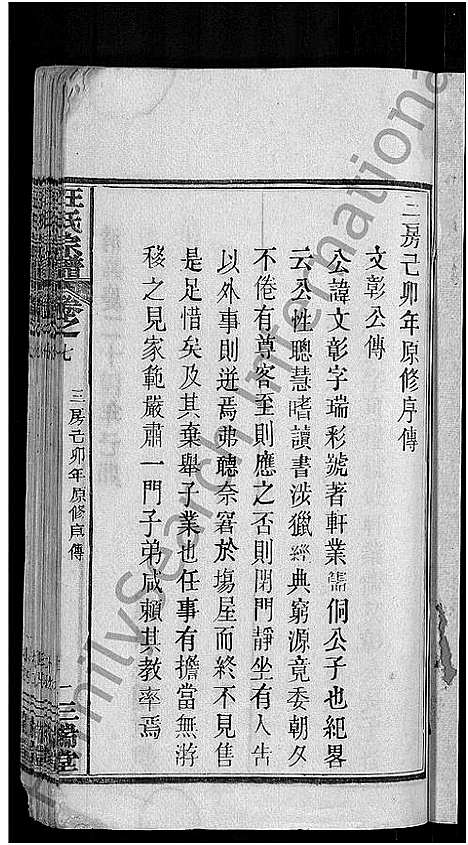 三房己卯年原修序傳
文彰公傳
公諱文彰字瑞彩號著軒業儒侗公子也紀畧
云公性聰慧嗜讀書涉獵經典窮源竟委朝夕
不倦有尊客至則應之否則閉門靜坐有人告
以外事則迸焉弗聽奈窘於場屋而終不見售
是足惜矣及其棄舉子業也任事有擔當無游
移之見家範嚴肅一門子弟咸賴其教率焉
汪氏宗譜 卷之七
三房己卯年原修序傳
一
堂
FamilySearch International